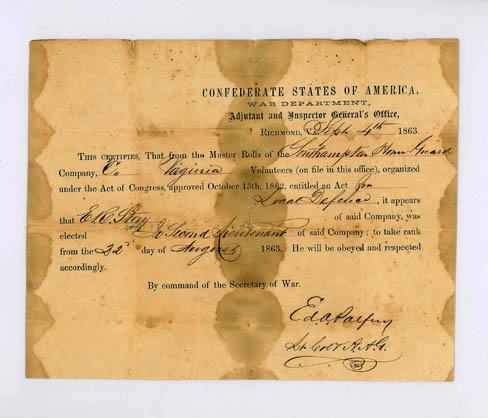 CONFEDERATE STATES OF AMERICA,
WAR DEPARTMENT,
Adjutant and Inspector General's Office,
RICHMOND, V Sept 4th 1863.
THIS CERTIFIES, That from the Muster Rolls of the Southampton Home Guard
Company, Virginia Volunteers (on file in this office), organized
under the Act of Congress, approved October 13th, 1862, entitled an Act for
Local Defence, it appears
that of said Company, was
elected Second Lieutenant of said Company; to take rank
from the 22 day of August 1863. He will be obeyed and respected
accordingly.
By command of the Secretary of War.
Ed. A. Palfrey
Lt Col & A.A.G.